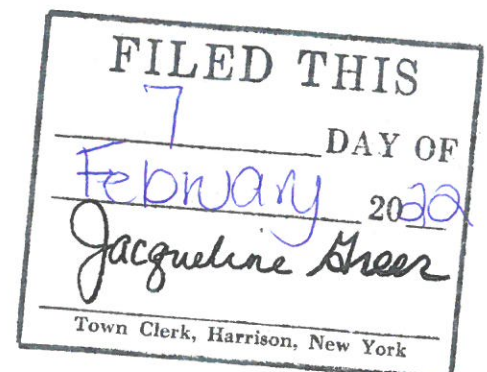 FILED THIS
7 DAY OF
February 2022
Jacqueline Greer
Town Clerk, Harrison, New York